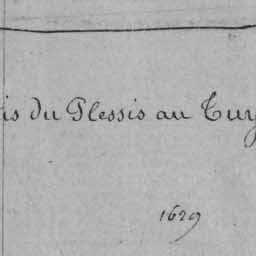 is du Plessis au Tuy
1629